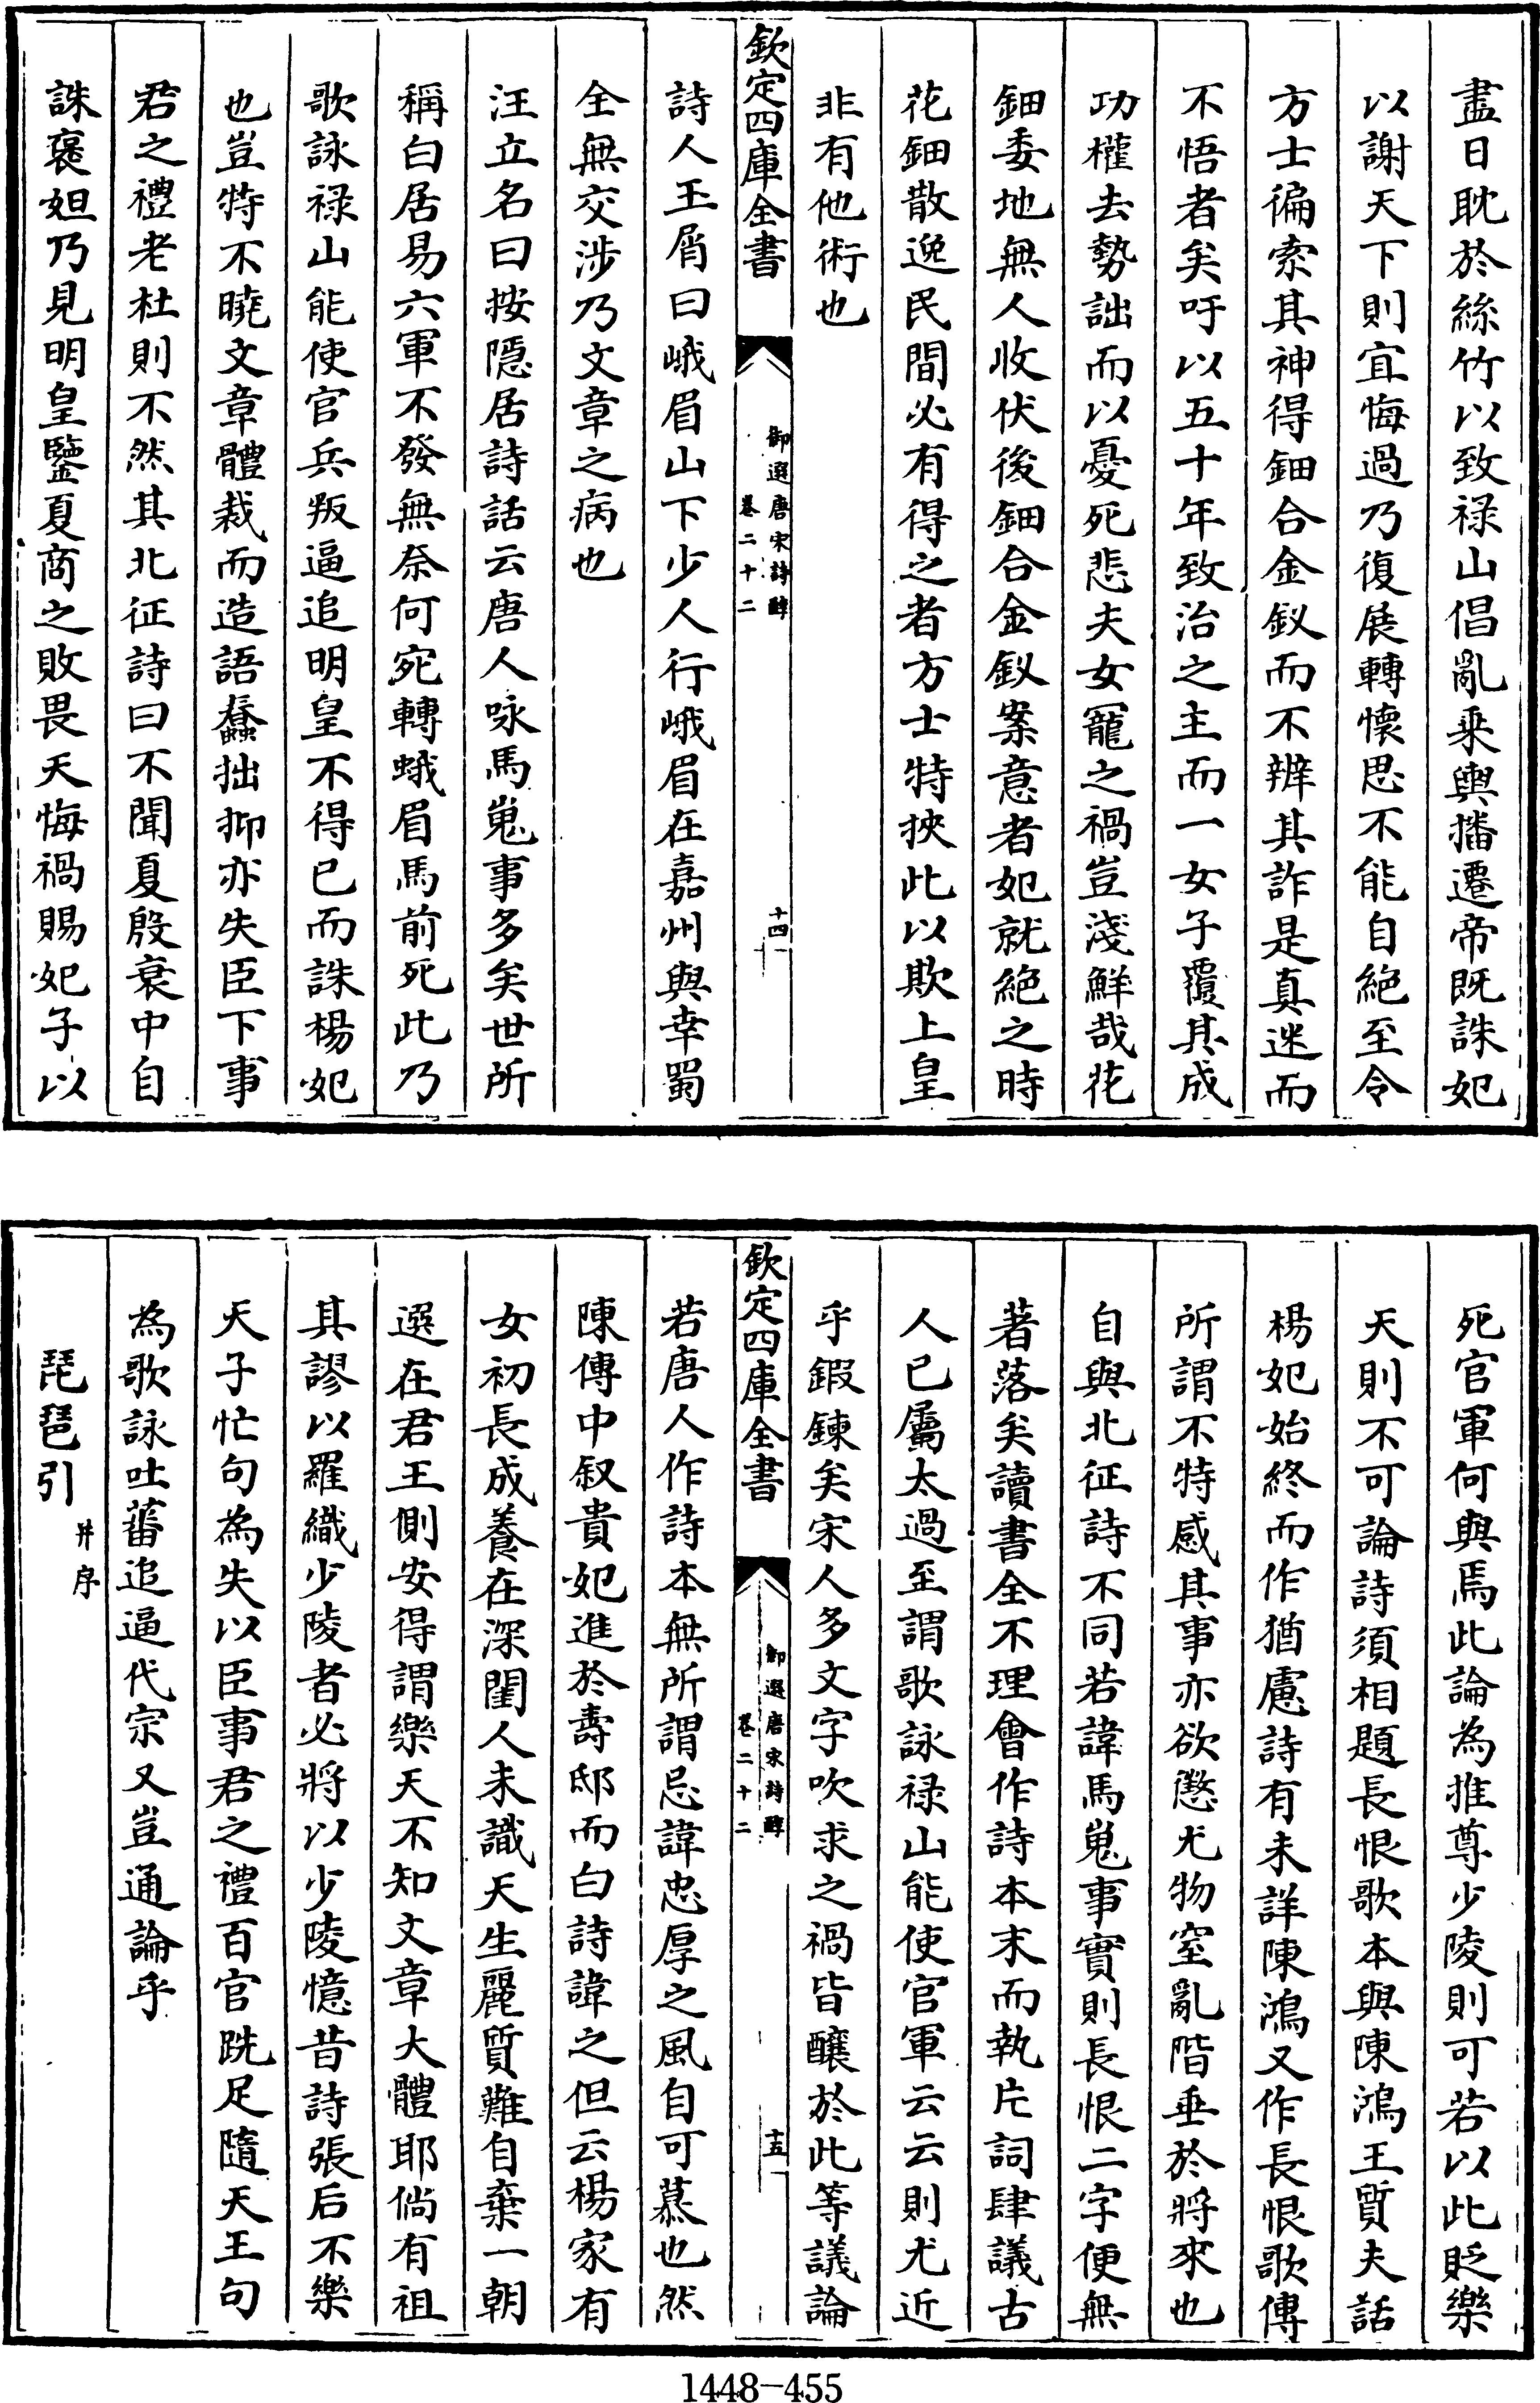 盡日耽於絲竹以致禄山倡亂乘輿播遷帝既誅妃
以謝天下則宜悔過乃復展轉懷思不能自絶至令
方士徧索其神得鈿合金釵而不辨其詐是真迷而
不悟者矣吁以五十年致治之主而一女子覆其成
功權去勢詘而以憂死悲夫女寵之禍豈淺鮮哉花
鈿委地無人收伏後鈿合金釵案意者妃就絶之時
花鈿散逸民間必有得之者方士特挾此以欺上皇
非有他術也
欽定四庫全書
御選唐宋詩醇
卷二十二
十四
詩人玉屑曰峨眉山下少人行峨眉在嘉州與幸蜀
全無交涉乃文章之病也
汪立名曰按隱居詩話云唐人咏馬嵬事多矣世所
稱白居易六軍不發無奈何宛轉蛾眉馬前死此乃
歌詠禄山能使官兵叛逼追明皇不得已而誅楊妃
也豈特不曉文章體裁而造語蠢拙抑亦失臣下事
君之禮老杜則不然其北征詩曰不聞夏殷衰中自
誅褒妲乃見明皇鑒夏商之敗畏天悔禍賜妃子以
死官軍何與焉此論為推尊少陵則可若以此貶樂
天則不可論詩須相題長恨歌本與陳鴻王質夫話
楊妃始終而作猶慮詩有未詳陳鴻又作長恨歌傳
所謂不特感其事亦欲懲尤物窒亂階垂於將來也
自與北征詩不同若諱馬嵬事實則長恨二字便無
著落矣讀書全不理會作詩本末而執片詞肆議古
人已屬太過至謂歌詠禄山能使官軍云云則尤近
乎鍜鍊矣宋人多文字吹求之禍皆釀於此等議論
欽定四庫全書
御選唐宋詩醇
卷二十二
十五
若唐人作詩本無所謂忌諱忠厚之風自可慕也然
陳傳中叙貴妃進於壽邸而白詩諱之但云楊家有
女初長成養在深閨人未識天生麗質難自棄一朝
選在君王側安得謂樂天不知文章大體耶倘有祖
其謬以羅織少陵者必將以少陵憶昔詩張后不樂
天子忙句為失以臣事君之禮百官跣足隨天王句
為歌詠吐蕃追逼代宗又豈通論乎
琵琶引 并序
1448-455